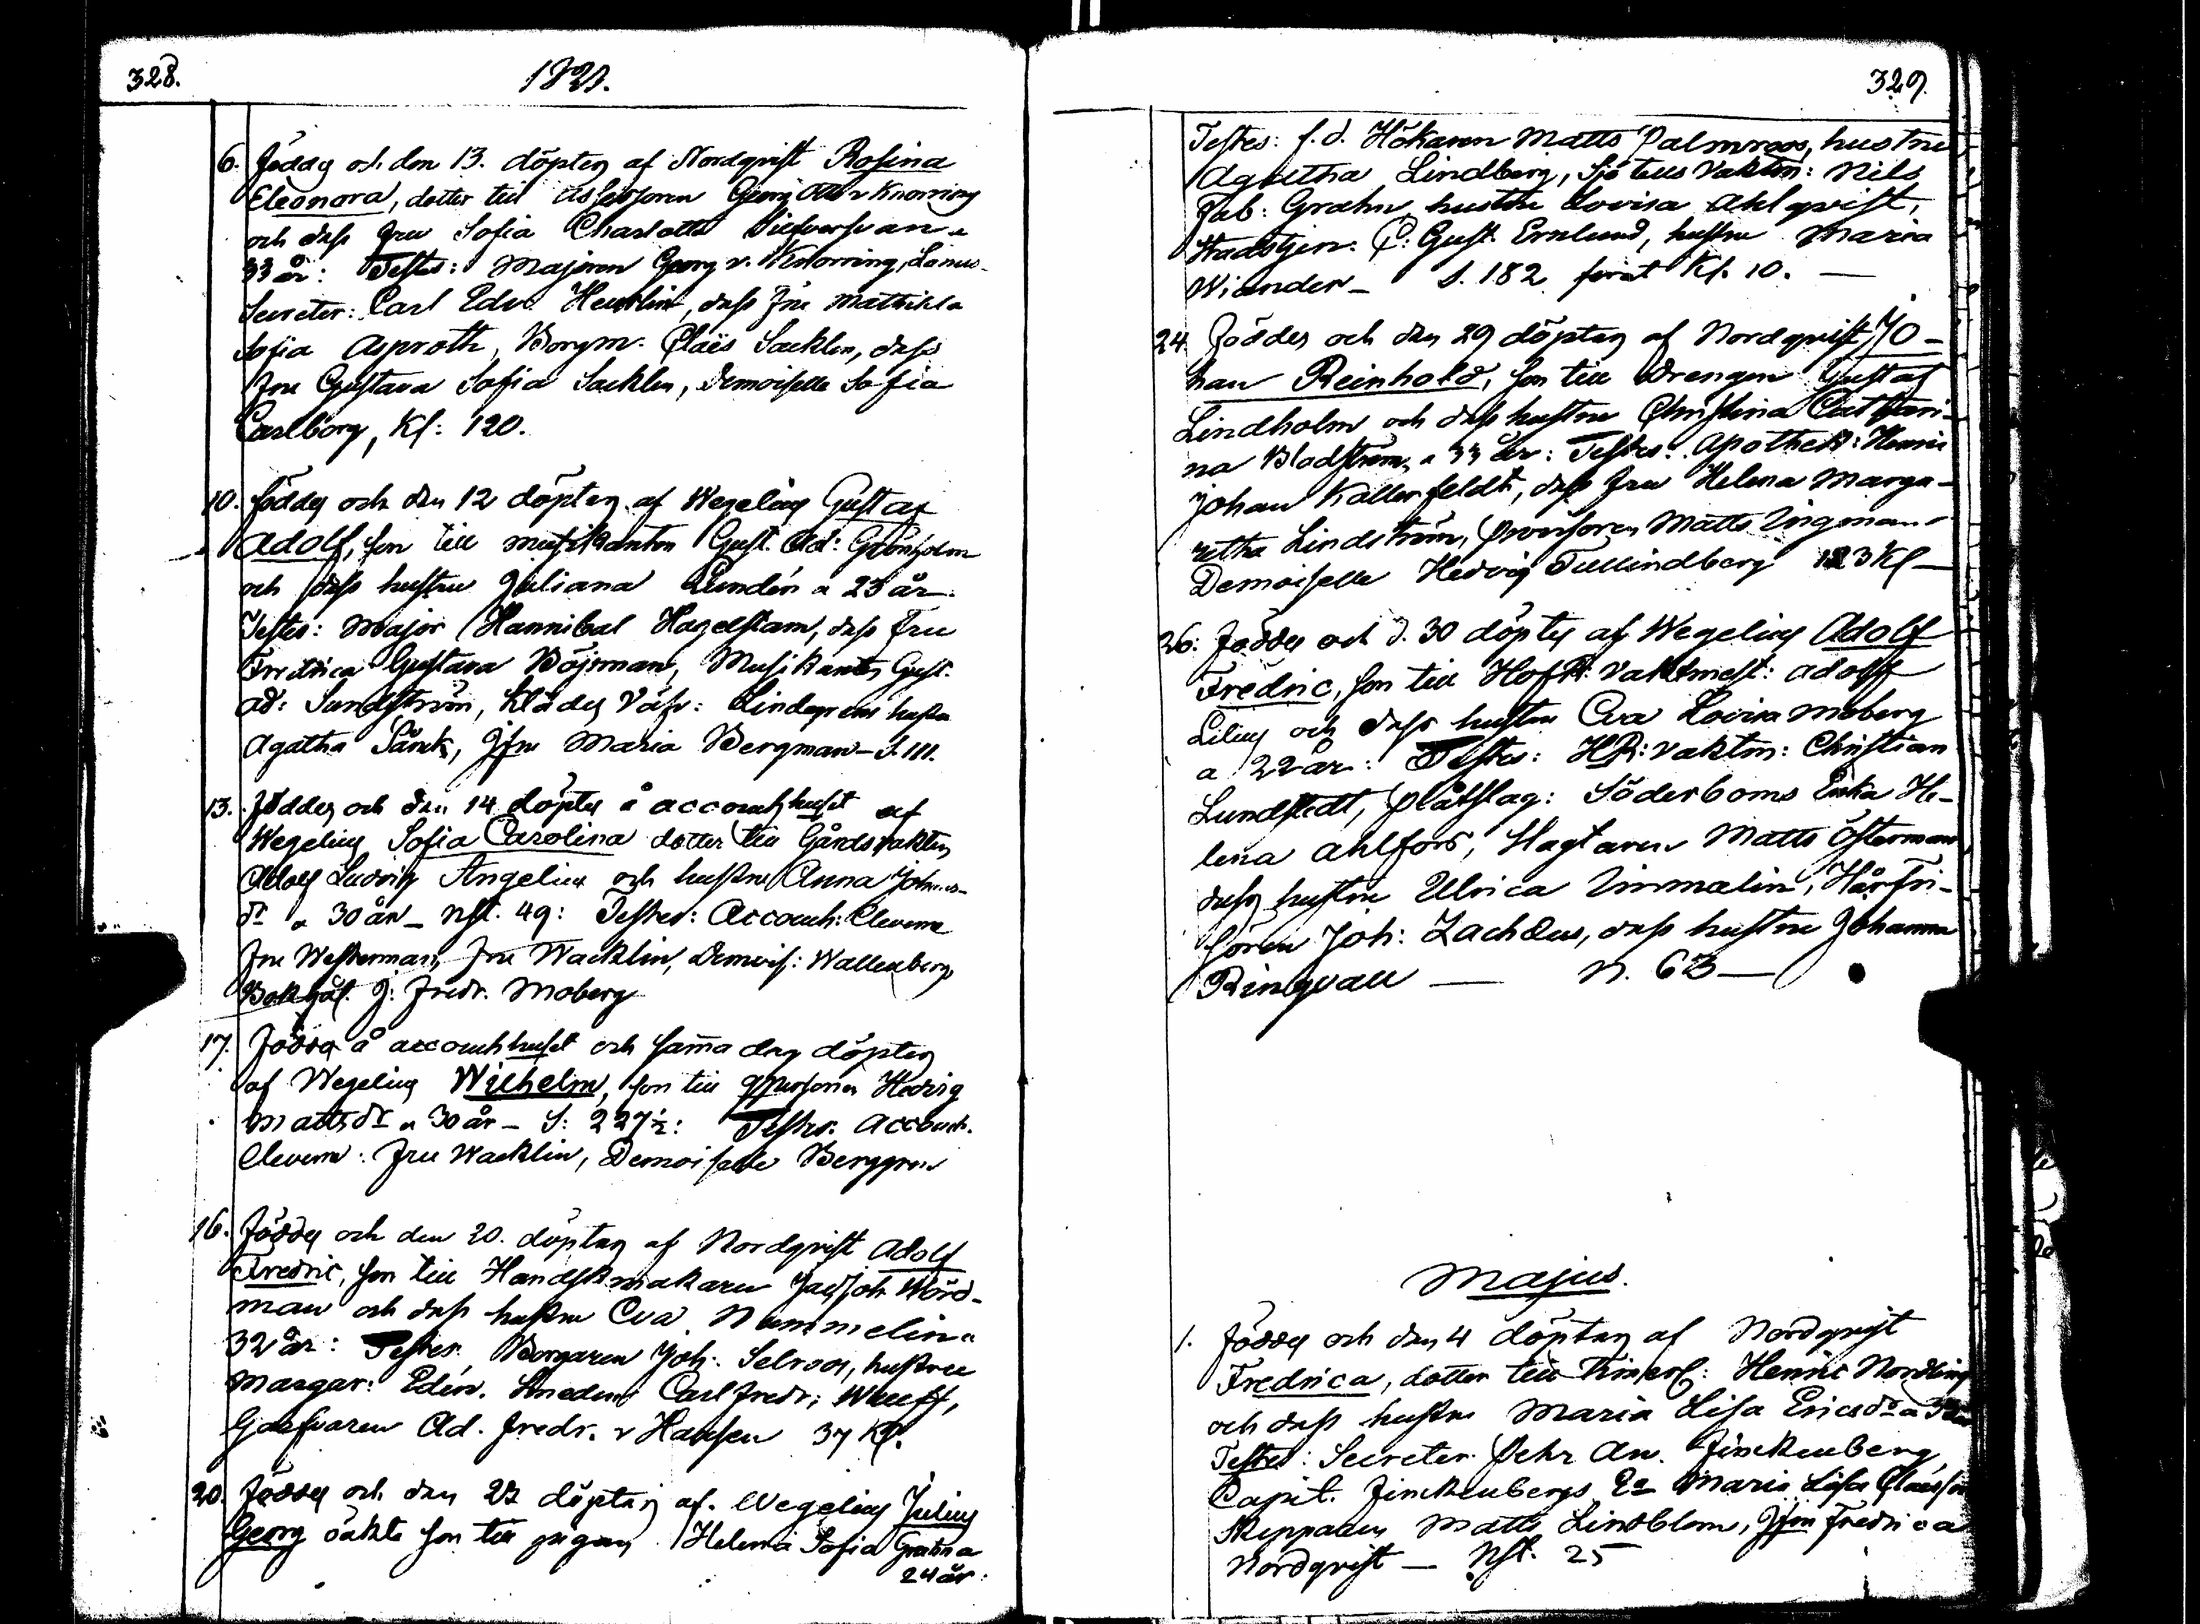 328.
1821.
6. Föddes och den 13. döptes af Nordqvist Rosina
Eleonora, dotter till Assessoren Georg Otto v Knorring
och dess Fru Sofia Charlotta
33 år: Testes: Majoren Georg v. Knorring, Lands-
Secreter: Carl Edv. Heurlin, dess Fru Mathilda
Sofia Asproth, Borgm. Claës Sacklen, dess
Fru Gustava Sofia Sacklen, Demoiselle Sofia
Carlborg, Kl: 120.
10. Föddes och den 12 döptes af Wegelius Gustaf
Adolf, son till musikanten Gust. Ad: Grönholm
och dess hustru Juliana Lundén a 23 år.
Testes: Major Hannibal Hagelstam, dess Fru
Fredrica Gustava Böjsman, Musikanten Gust.
Ad: Sundström, Kläde Väfv: Lindgrens hustru
Agatha Jfru Maria Bergman – S. 111.
13. Föddes och den 14 döptes å accouchhuset af
Wegelius Sofia Carolina dotter till Gårdsvakten
Adolf Ludvig Angelius och hustru Anna Johans-
dr a 30 år – Nst. 49: Testes: Accouch: Eleverne
Fru Westerman, Fru Wacklin, Demois: Wallenberg
Bokhål. J: Fredr. Moberg
17. Födde å accouchhuset och sam̄a dag döptes
af Wegelius Wilhelm, son till qpersonen Hedvig
Mattsdr a 30 år – S: 227½: Testes. Accouch.
Eleverne: Fru Wacklin, Demoiselle Berggren
16. Föddes och den 20. döptes af Nordqvist Adolf
Fredric, son till Handskmakaren Jac Joh Nord-
man och dess hustru Eva Nummelin a
32 år: Testes. Borgaren Joh. Selroos, hustru
Margar: Edén. Smeden Carl Fredr: Wulff,
Garfvaren Ad. Fredr. v Hausen 37 Kl.
20. Föddes och den 23 döptes af Wegelius Julius
Georg oäkta son till pigan Helena Sofia Grahn a
24 år:
329.
Testes: f.d. Hökaren Matts Palmroos, hustru
Agatha Lindberg, Sjötulls Vaktm: Nils
Jab: Grahn, hustru Lovisa Ahlqvist,
Stadstjen. C: Gust. Ernlund, hustru Maria
Wiander – S. 182 förut Kl. 10. —
24. Föddes och den 29 döptes af Nordqvist Jo-
han Reinhold, son till Drengen Gustaf
Lindholm och dess hustru Christina Cathari-
na Blodström, a 33 år: Testes: Apothek: Henric
Johan Kallenfeldt, dess Fru Helena Marga-
retha Lindström, Provisoren Matts Ingman,
Demoiselle Hedvig Tullindberg 123 Kl —
26. Föddes och d. 30 döptes af Wegelius Adolf
Fredric, son till HofR: Vaktmest: Adolf
Lilius och dess hustru Eva Lovisa Moberg
a 22 år: Testes: HR: Vaktm: Christian
Lundstedt, plåtslag: Söderboms Enka He-
lena Ahlfors, Matts Österman
dess hustru Ulrica Limmalin, Hårfri-
sören Joh: Zachæus, dess hustru Johanna
Ringvall — N. 63 —
Majus.
1. Föddes och den 4 döptes af Nordqvist
Fredrica, dotter till Timerl: Henric Nordling
och dess hustru Maria Lisa Ericsdr a
Testes: Secreter. Pehr An. Finckenberg,
Capit. Finckenbergs Ea Maria Lisa
Skepparen Matts Lindblom, Jfru Fredrica
Nordqvist — Nst. 25